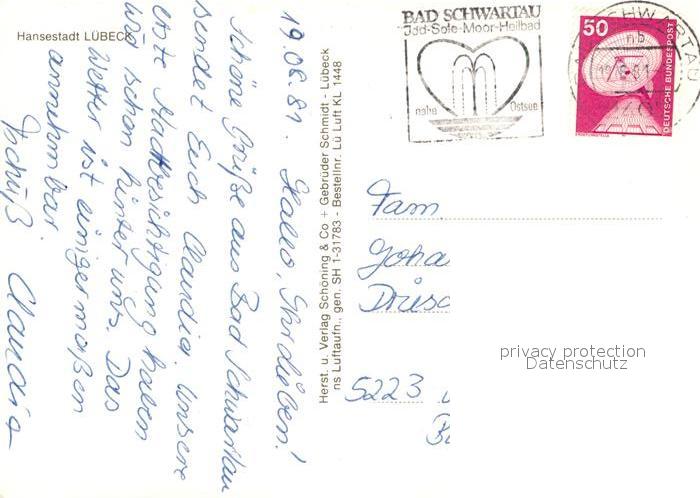 Hansestadt LÜBECK
19.08.81. Hallo, Ihr Lieben!
Schöne Grüße aus Bad Schwartau
sendet Euch Claudia. Unsere
erste Stadtbesichtigung haben
wir schon hinter uns. Das
Wetter ist einigermaßen
annehmbar.
Tschüß Claudia
Herst. u. Verlag Schöning & Co + Gebrüder Schmidt - Lübeck
ns Luftaufn., gen. SH 1-31783 - Bestellnr. Lü Luft KL 1448
BAD SCHWARTAU
Jod-Sole-Moor-Heilbad
nahe Ostsee
50
DEUTSCHE BUNDESPOST
Fam.
Joha
Drüsc
5223
privacy protection
Datenschutz